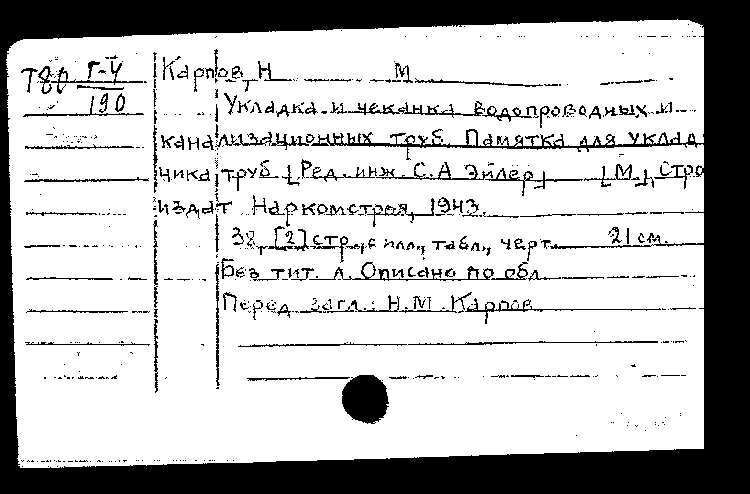 Т80 Г-4 Карпов, Н М
190
Укладка и чеканка водопроводных и
канализационных труб. Памятка для уклад
чика труб [Ред. инж. С.А Эйлер] [М.], Стро
издат Наркомстроя, 1943.
38, [2] стр., с илл., табл., черт. 21 см.
Без тит. л. Описано по обл.
Перед загл.: Н.М. Карпов